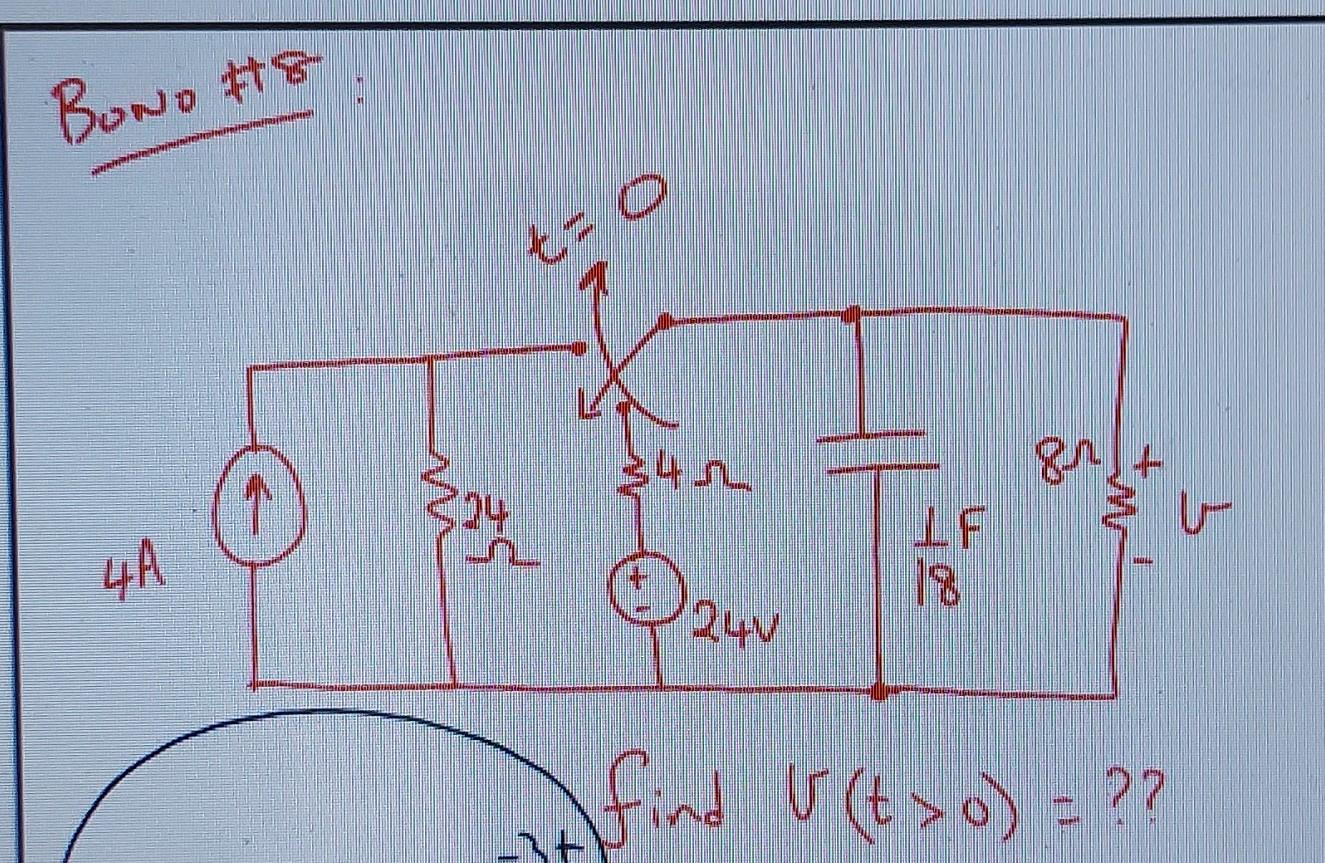 BONO #8 :
t=0
4A
24
Ω
4Ω
24V
1/18 F
8Ω
+
V
-
+
-
find V(t>0) = ??